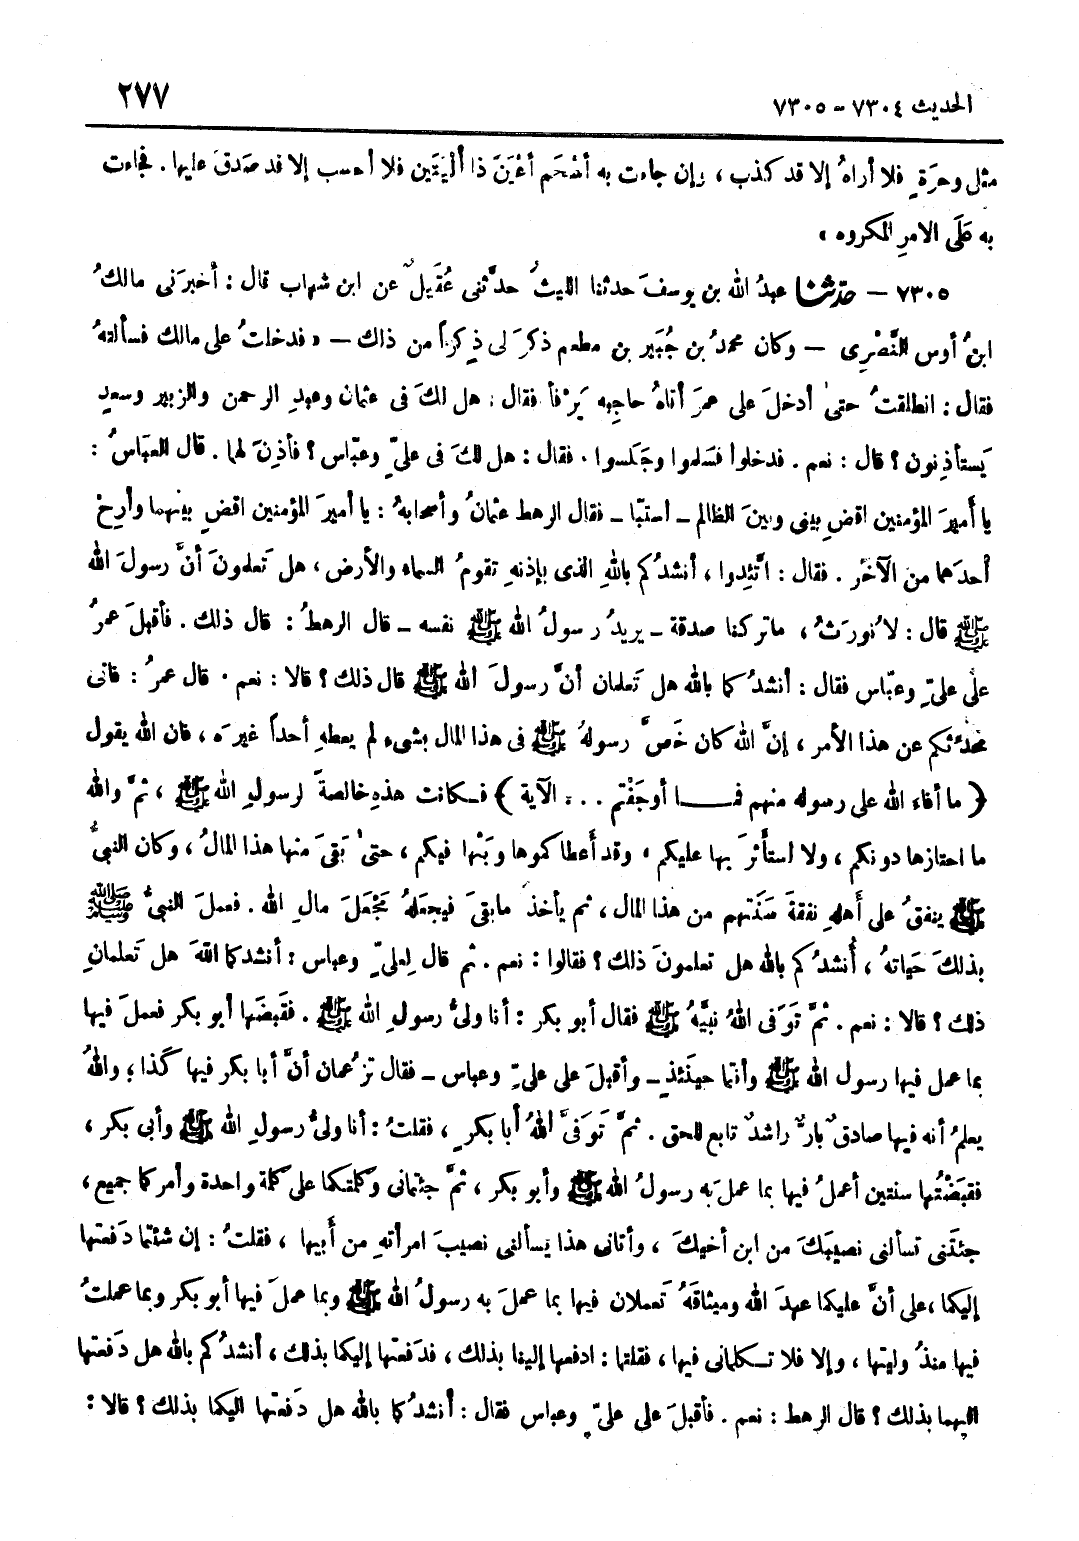 الحديث ٧٣٠٤ - ٧٣٠٥
٢٧٧
مثل وحرَةٍ فلا أراهُ إلا قد كذب ، وإن جاءت به أسْحَم أعْيَنَ ذا ألْيَتَين فلا أحسب إلا قد صَدقَ عليها . فجاءت
به عَلَى الامرِ المكروه »
٧٣٠٥ — حدّثنا عبدُ الله بن يوسفَ حدثنا الليثُ حدَّثنى عُقَيلٌ عن ابن شهاب قال : أخبرَنى مالكُ
ابنُ أوس النَّصْرِى — وكان محمدُ بن جُبَير بن مطعم ذكرَ لى ذِكراً من ذاك — « فدخلتُ على مالك فسألتهُ
فقال : انطلقتُ حتىٰ أدخلَ على عمرَ أتاهُ حاجبه يَرْفأ فقال : هل لكَ فى عثمان وعبدِ الرحمن والزبير وسعدٍ
يَستأذِنون ؟ قال : نعم . فدخلوا فسَلموا وجَلسوا . فقال : هل لكَ فى علىٍّ وعبّاس ؟ فأذِنَ لهما . قال العبّاسُ :
يا أميرَ المؤمنين اقضِ بينى وبينَ الظالم ــ استبّا ــ فقال الرهط عثمانُ وأصحابهُ : يا أميرَ المؤمنين اقضِ بينهما وأرِحْ
أحدَهما من الآخَرِ . فقال : اتَّئِدوا ، أنشدُكم باللهِ الذى بإذنهِ تقومُ السماء والأرض ، هل تَعلمونَ أنَّ رسولَ الله
ﷺ قال : لا نُورَثُ ، ماتركنا صدقة ــ يريدُ رسولُ الله ﷺ نفسه ــ قال الرهطُ : قال ذلك . فأقبلَ عمرُ
على علىٍّ وعبّاس فقال : أنشدُكما بالله هل تَعلمان أنَّ رسولَ الله ﷺ قال ذلك ؟ قالا : نعم . قال عمرُ : فانى
محدِّثكم عن هذا الأمر ، إنَّ الله كان خَصَّ رسولهُ ﷺ فى هذا المال بشىء لم يعطهِ أحداً غيرَه ، فان الله يقول
﴿ ما أفاء الله على رسوله منهم فمـــا أوجَفْتم . . . الآية ﴾ فــكانت هذهِ خالصةً لرسولِ الله ﷺ ، ثمَّ والله
ما احتازها دونكم ، ولا استأثرَ بها عليكم ، وقد أعطاكموها وبَثها فيكم ، حتىٰ بَقىَ منها هذا المالُ ، وكان النبىُّ
ﷺ ينفقُ على أهلهِ نفقةَ سَنَتهم من هذا المال ، ثم يأخذُ مابقىَ فيجعَلهُ مَجْعَلَ مالِ الله . فعملَ النبىُّ ﷺ
بذلكَ حَياتهُ ، أنشدُكم بالله هل تعلمونَ ذلك ؟ فقالوا : نعم . ثم قال لِعلىٍّ وعباس : أنشدكما اللهَ هل تَعلمانِ
ذلك ؟ قالا : نعم . ثمَّ تَوَفى اللهُ نبيَّهُ ﷺ فقال أبو بكر : أنا ولىُّ رسولِ الله ﷺ . فقَبضَها أبو بكر فعملَ فيها
بما عمل فيها رسول الله ﷺ وأنتما حينئذٍ ــ وأقبلَ على علىٍّ وعباس ــ فقال تزعُمان أنَّ أبا بكر فيها كَذا ، واللهُ
يعلمُ أنه فيها صادقٌ بارٌّ راشدٌ تابع للحق . ثمَّ تَوَفىَّ اللهُ أبا بكرٍ ، فقلتُ : أنا ولىُّ رسولِ الله ﷺ وأبى بكر ،
فقبَضْتُها سنتين أعملُ فيها بما عملَ به رسولُ الله ﷺ وأبو بكر ، ثمَّ جئتمانى وكلمتكما على كلمة واحدة وأمركما جميع ،
جئتَنى تسألنى نصيبَكَ من ابن أخيكَ ، وأتانى هذا يسألنى نصيبَ امرأتهِ من أبيها ، فقلتُ : إن شئتما دَفعتها
إليكما ، على أنَّ عليكما عهدَ الله وميثاقَهُ تَعملان فيها بما عملَ به رسولُ الله ﷺ وبما عملَ فيها أبو بكر وبما عملتُ
فيها منذُ وليتها ، وإلا فلا تــكلمانى فيها ، فقلتما : ادفعها إلينا بذلك ، فدَفعتها إليكما بذلك ، أنشدُكم بالله هل دَفعتها
اليهما بذلك ؟ قال الرهط : نعم . فأقبلَ على علىٍّ وعباس فقال : أنشدُكما بالله هل دَفعتها اليكما بذلك ؟ قالا :